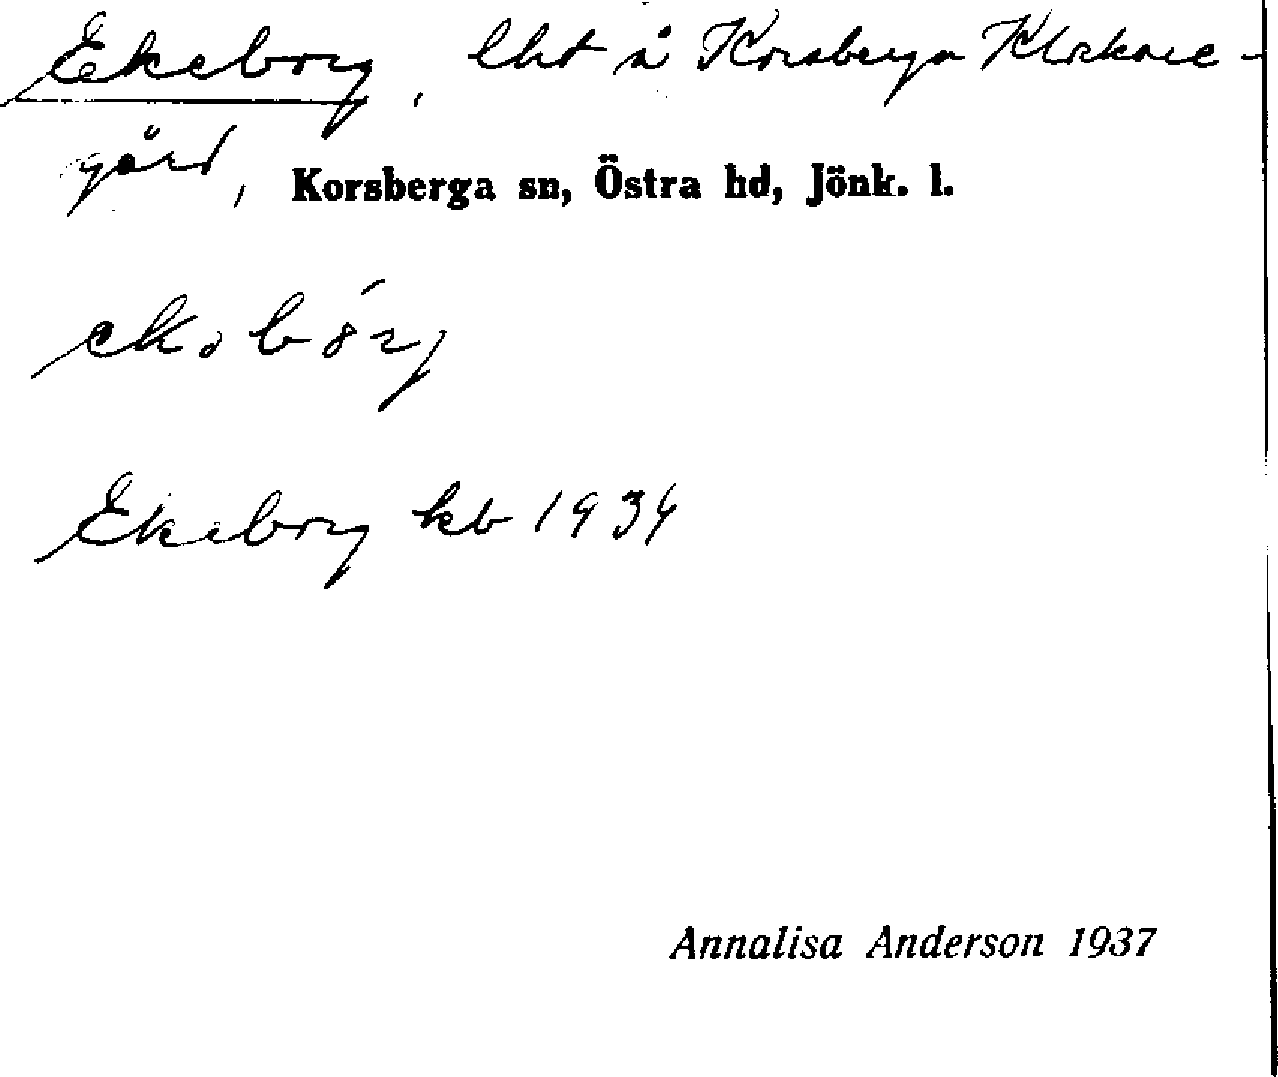 Ekeborg, lht å Korsberga Klockare-
gård, Korsberga sn, Östra hd, Jönk. l.
Ekeborg kb 1934
Annalisa Anderson 1937